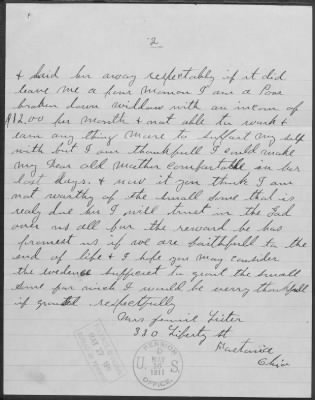 2
& laid her away respectably if it did
leave me a poor woman I am a Poor
broken down widdow with an incom of
$12.00 per month & not able to work &
earn any thing more to support my self
with but I am thankfull I could make
my dear old mother comfortable in her
last days. & now if you think I am
not worthy of the small sume that is
realy due her I will trust in the God
over us all for the reward he has
promest us if we are faithfull to the
end of life & I hope you may consider
the evidence sufficent to grant the small
sume for which I would be verry thankfull
if granted respectfully
Mrs Jennie Lister
330 Liberty St
Ohio
PENSION
MAY
1911
U S
OFFICE.